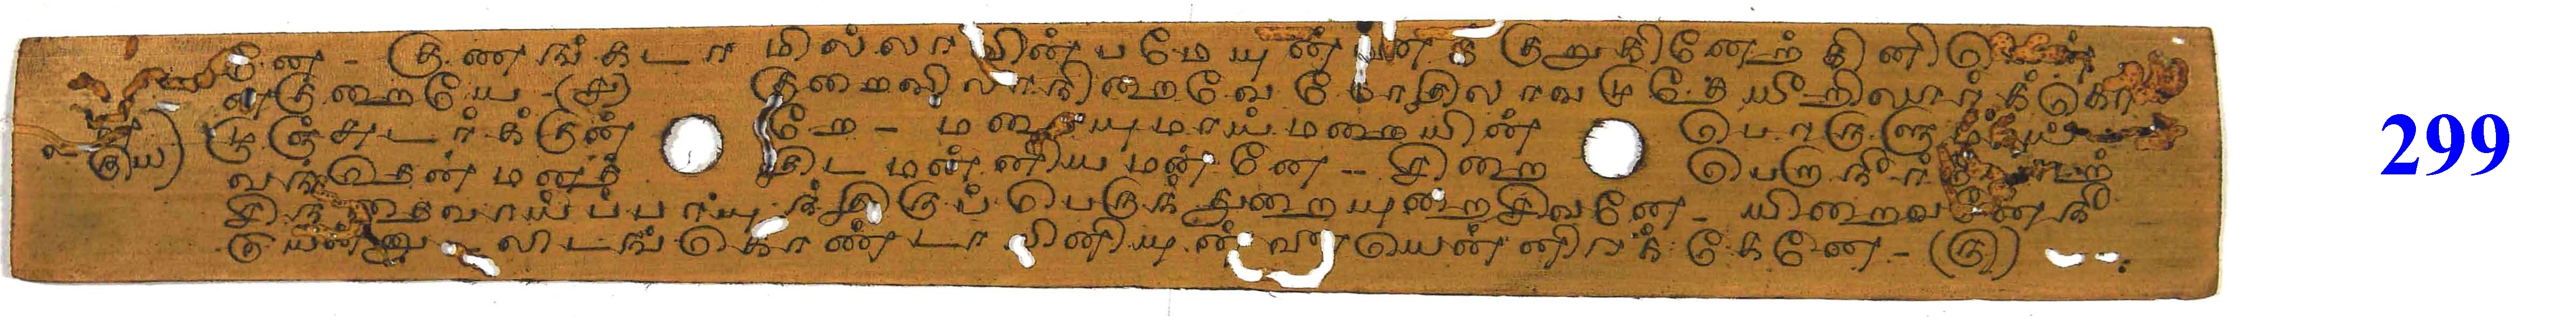 னே - குணங்கடா மில்லா வின்பமேயுன்னைக் குறுகினேற்கினியென்
னகுறையே - (௪) குறைவிலாநிறைவே கோதிலாவமுதே யீறிலாக்கொ
ழுஞ்சுடர்க்குன்றே - மறையுமாய் மறையின் பொருளுமாய்
வந்தென்மனத்திடை மன்னியமன்னே - சிறைபெறாநீர்
சிந்தைவாய்ப்பாயுந்திருப்பெருந்துறையுறைசிவனே - யிறைவனேநீ
லிடங்கொண்டா யினியுன்னை யென்னிரக்கேனே - (௫)
299